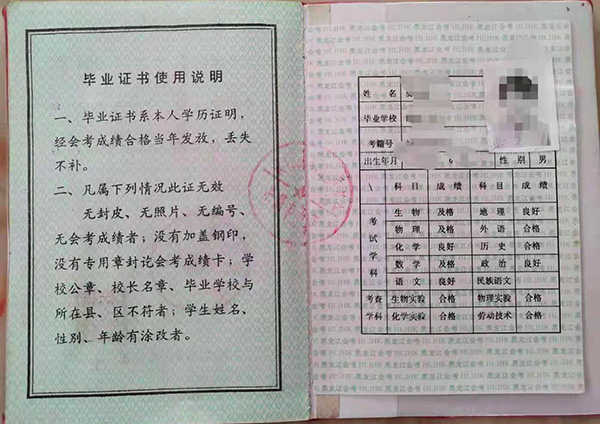 毕业证书使用说明
一、毕业证书系本人学历证明，
经会考成绩合格当年发放，丢失
不补。
二、凡属下列情况此证无效
无封皮、无照片、无编号、
无会考成绩者；没有加盖钢印，
没有专用章封讫会考成绩卡；学
校公章、校长名章、毕业学校与
所在县、区不符者；学生姓名、
性别、年龄有涂改者。
姓 名
毕业学校
考籍号
出生年月 性 别 男
科 目 成 绩 科 目 成 绩
考试学科
生 物 及格 地 理 良好
物 理 及格 外 语 合格
化 学 良好 历 史 合格
数 学 及格 政 治 良好
语 文 良好 民族语文
考查学科
生物实验 合格 物理实验 合格
化学实验 合格 劳动技术 合格
黑龙江会考 HLJHK